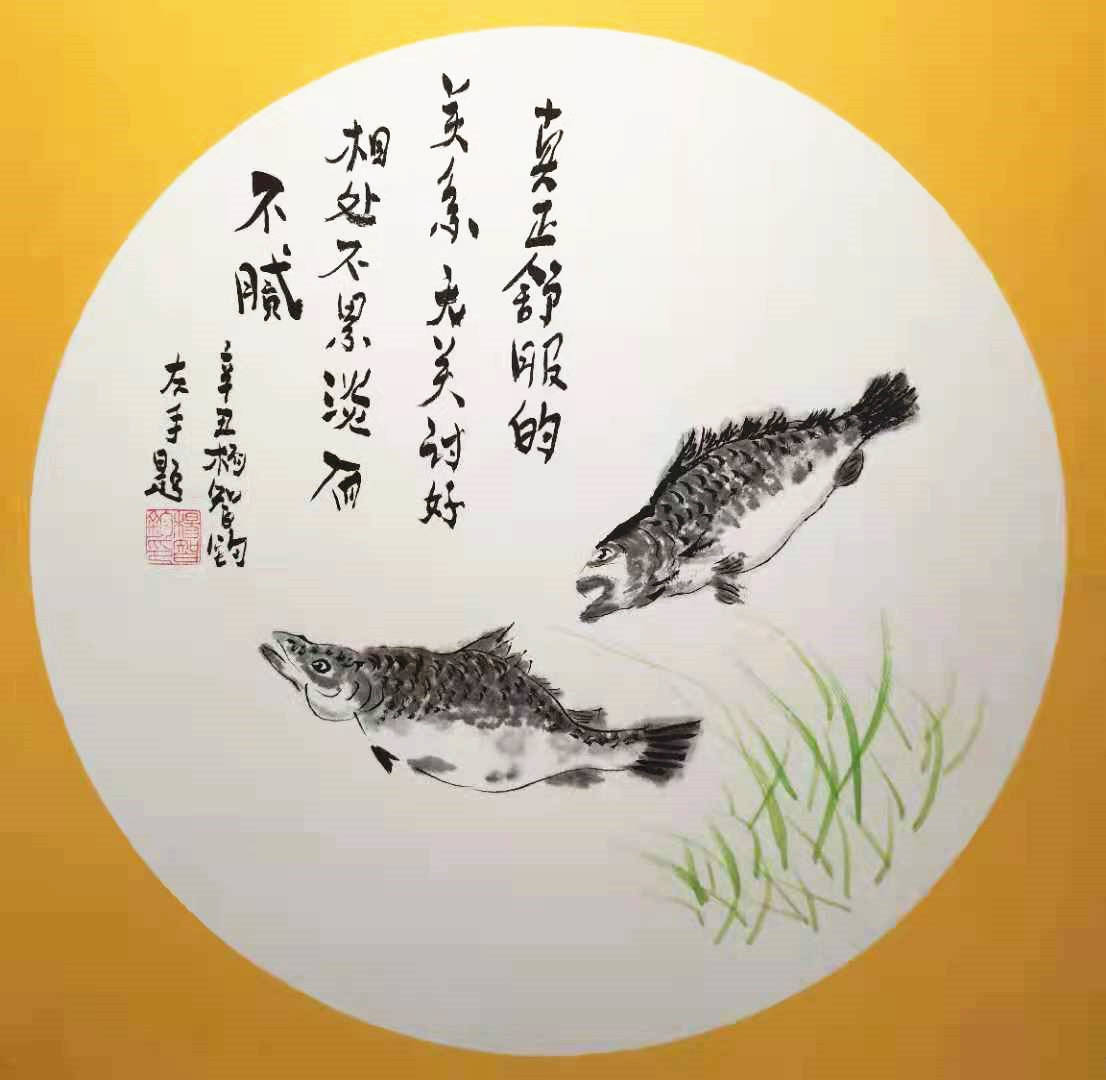 真正舒服的
关系无关讨好
相处不累淡而
不腻
辛丑杨智钧
左手题
楊智
鈞印